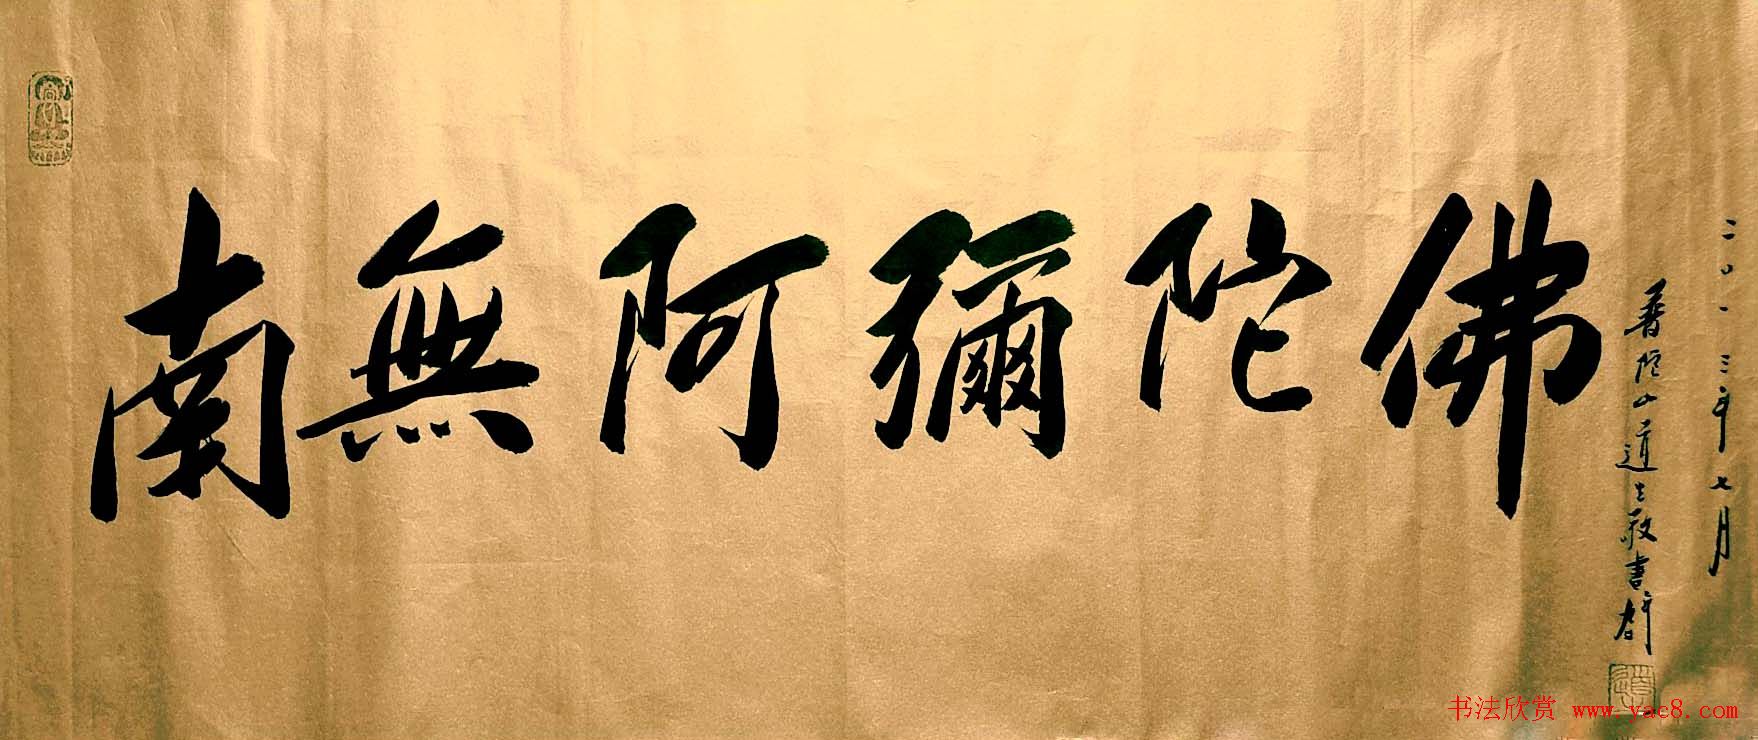 南無阿彌陀佛
二〇一三年七月
普陀山道生敬書
书法欣赏 www.yac8.com